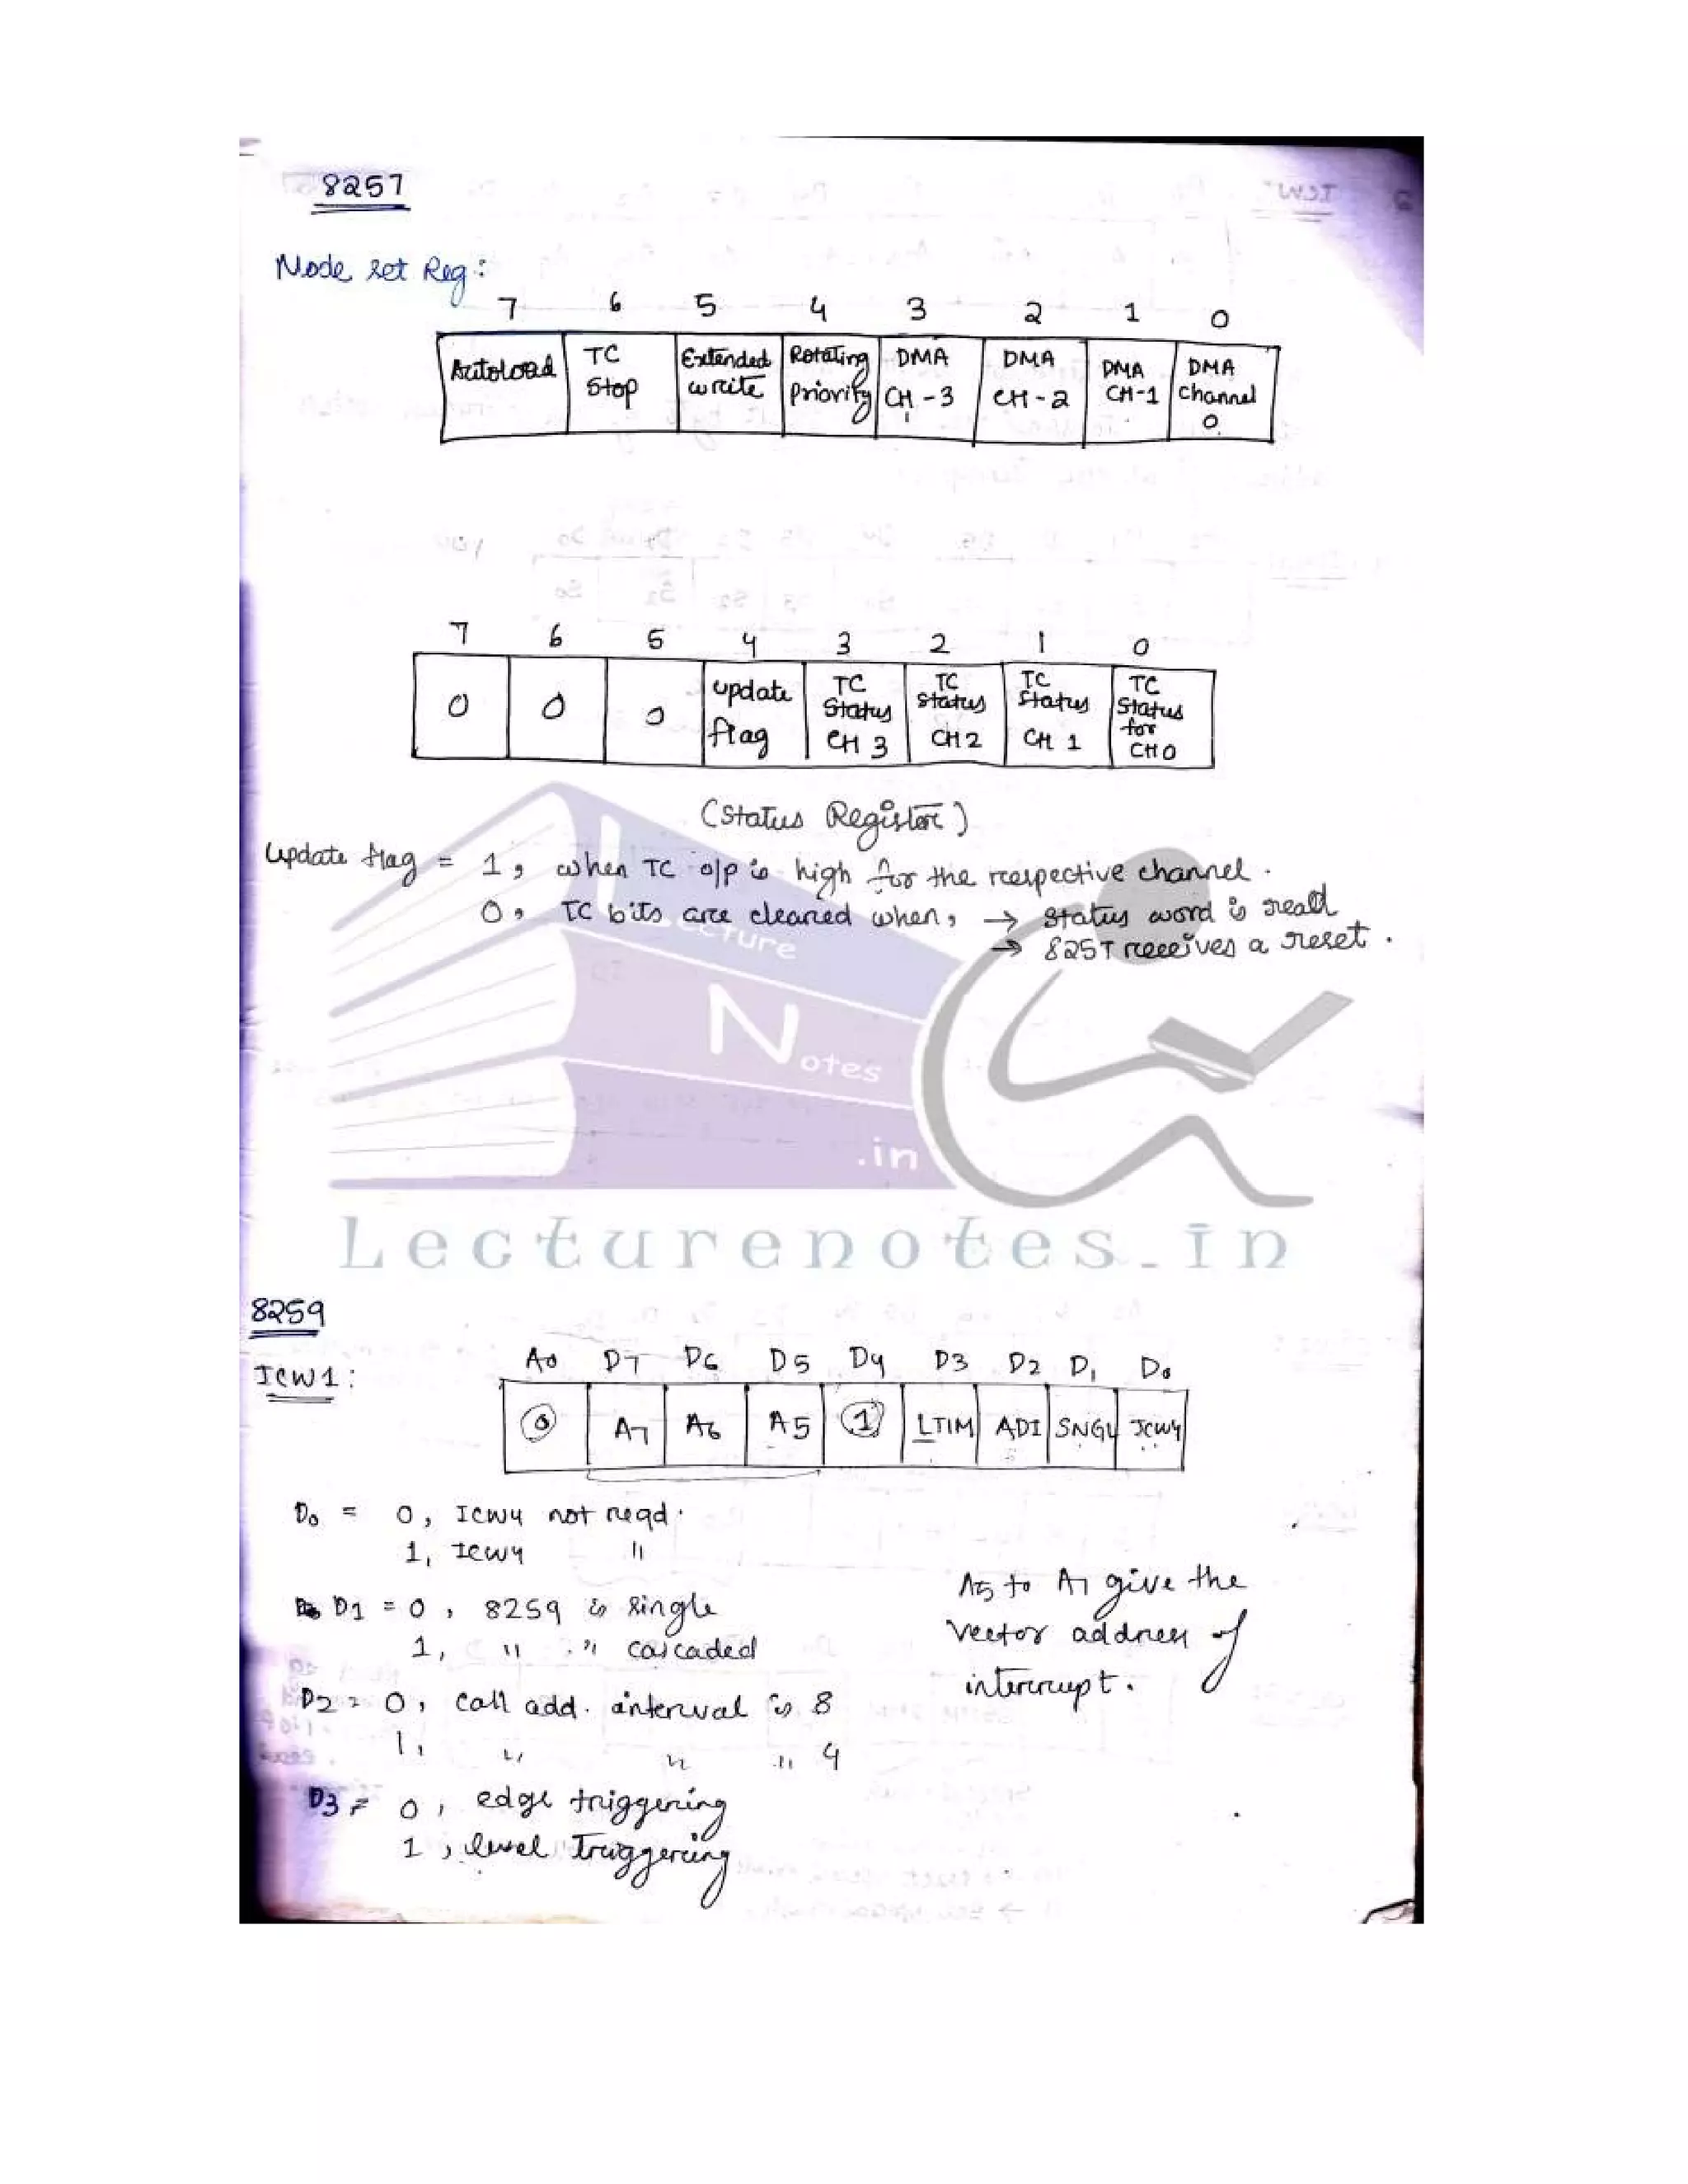 8257
Mode set Reg :
7 6 5 4 3 2 1 0
Autoload TC Stop Extended write Rotating Priority DMA CH-3 DMA CH-2 DMA CH-1 DMA Channel 0
7 6 5 4 3 2 1 0
0 0 0 update flag TC Status CH 3 TC Status CH2 TC Status CH 1 TC Status for CH0
(Status Register)
Update flag = 1, when TC o/p is high for the respective channel.
0, TC bits are cleared when, → status word is read
→ 8257 receives a reset.
Lecture
Notes
.in
Lecturenotes.in
8259
ICW1 :
A0 D7 D6 D5 D4 D3 D2 D1 D0
0 A7 A6 A5 1 LTIM ADI SNGL ICW4
D0 = 0, ICW4 not reqd.
1, ICW4 "
D1 = 0, 8259 is single
1, " " cascaded
D2 = 0, Call add. interval is 8
1, " " " 4
D3 = 0, edge triggering
1, level Triggering
A5 to A7 give the
vector address of
interrupt.